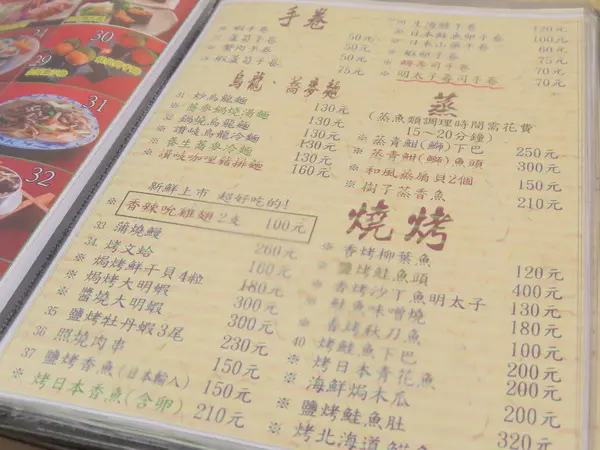 30
31
32
手卷
蝦手卷 50元
蘆筍手卷 50元
蟹肉手卷 50元
蝦蘆筍手卷 75元
生海膽手卷 120元
※ 日本鮭魚卵手卷 100元
※ 日本山藥手卷 60元
※ 蝦卵手卷 75元
壽司手卷 70元
※ 明太子壽司手卷 70元
烏龍．蕎麥麵
31 炒烏龍麵 130元
※ 蕎麥鍋燒湯麵 130元
32 鍋燒烏龍麵 130元
※ 讚岐烏龍冷麵 130元
※ 養生蕎麥冷麵 130元
※ 讚岐咖哩豬排麵 160元
蒸
(蒸魚類調理時間需花費
15～20分鐘)
※ 蒸青魽(鰤)下巴 250元
※ 蒸青魽(鰤)魚頭 300元
※ 和風蒸扇貝2個 150元
※ 樹子蒸香魚 210元
新鮮上市 超好吃的!
※ 香辣吮雞翅2支 100元
33 蒲燒鰻 260元
34 烤文蛤 160元
※ 焗烤鮮干貝4粒 180元
※ 焗烤大明蝦 300元
※ 醬燒大明蝦 300元
35 鹽烤牡丹蝦3尾 230元
36 照燒肉串 150元
37 鹽烤香魚(日本輸入) 150元
※ 烤日本香魚(含卵) 210元
燒烤
※ 香烤柳葉魚 120元
※ 鹽烤鮭魚頭 400元
※ 香烤沙丁魚明太子 130元
※ 鮮魚味噌燒 180元
※ 香烤秋刀魚 100元
40 烤鮭魚下巴 200元
※ 烤日本青花魚 200元
※ 海鮮焗木瓜 200元
※ 鹽烤鮭魚肚 320元
※ 烤北海道